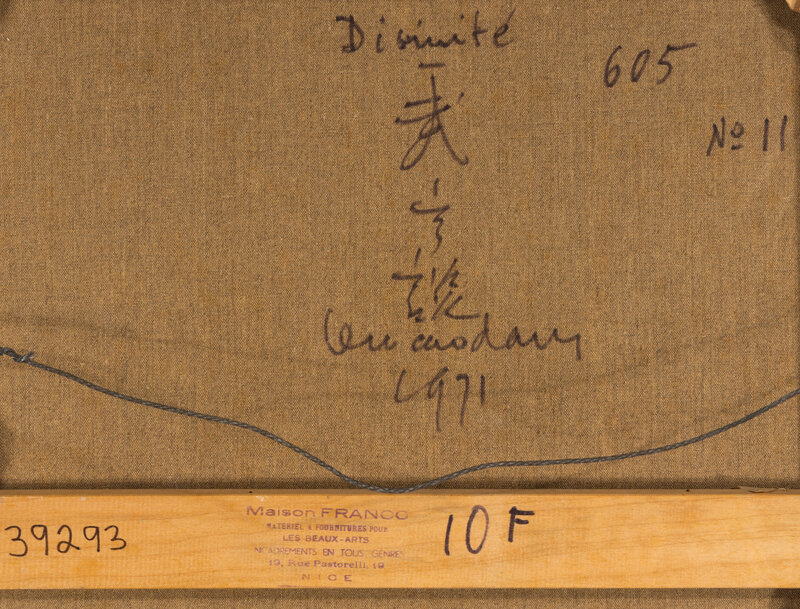 Divinité
605
No 11
武
高
談
Vu caodam
1971
39293
Maison FRANCO
MATERIEL & FOURNITURES POUR
LES BEAUX-ARTS
ENCADREMENTS EN TOUS GENRES
19, Rue Pastorelli, 19
NICE
10 F